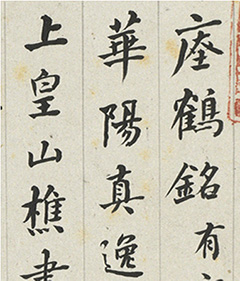 瘞鶴銘有
華陽真逸
上皇山樵書